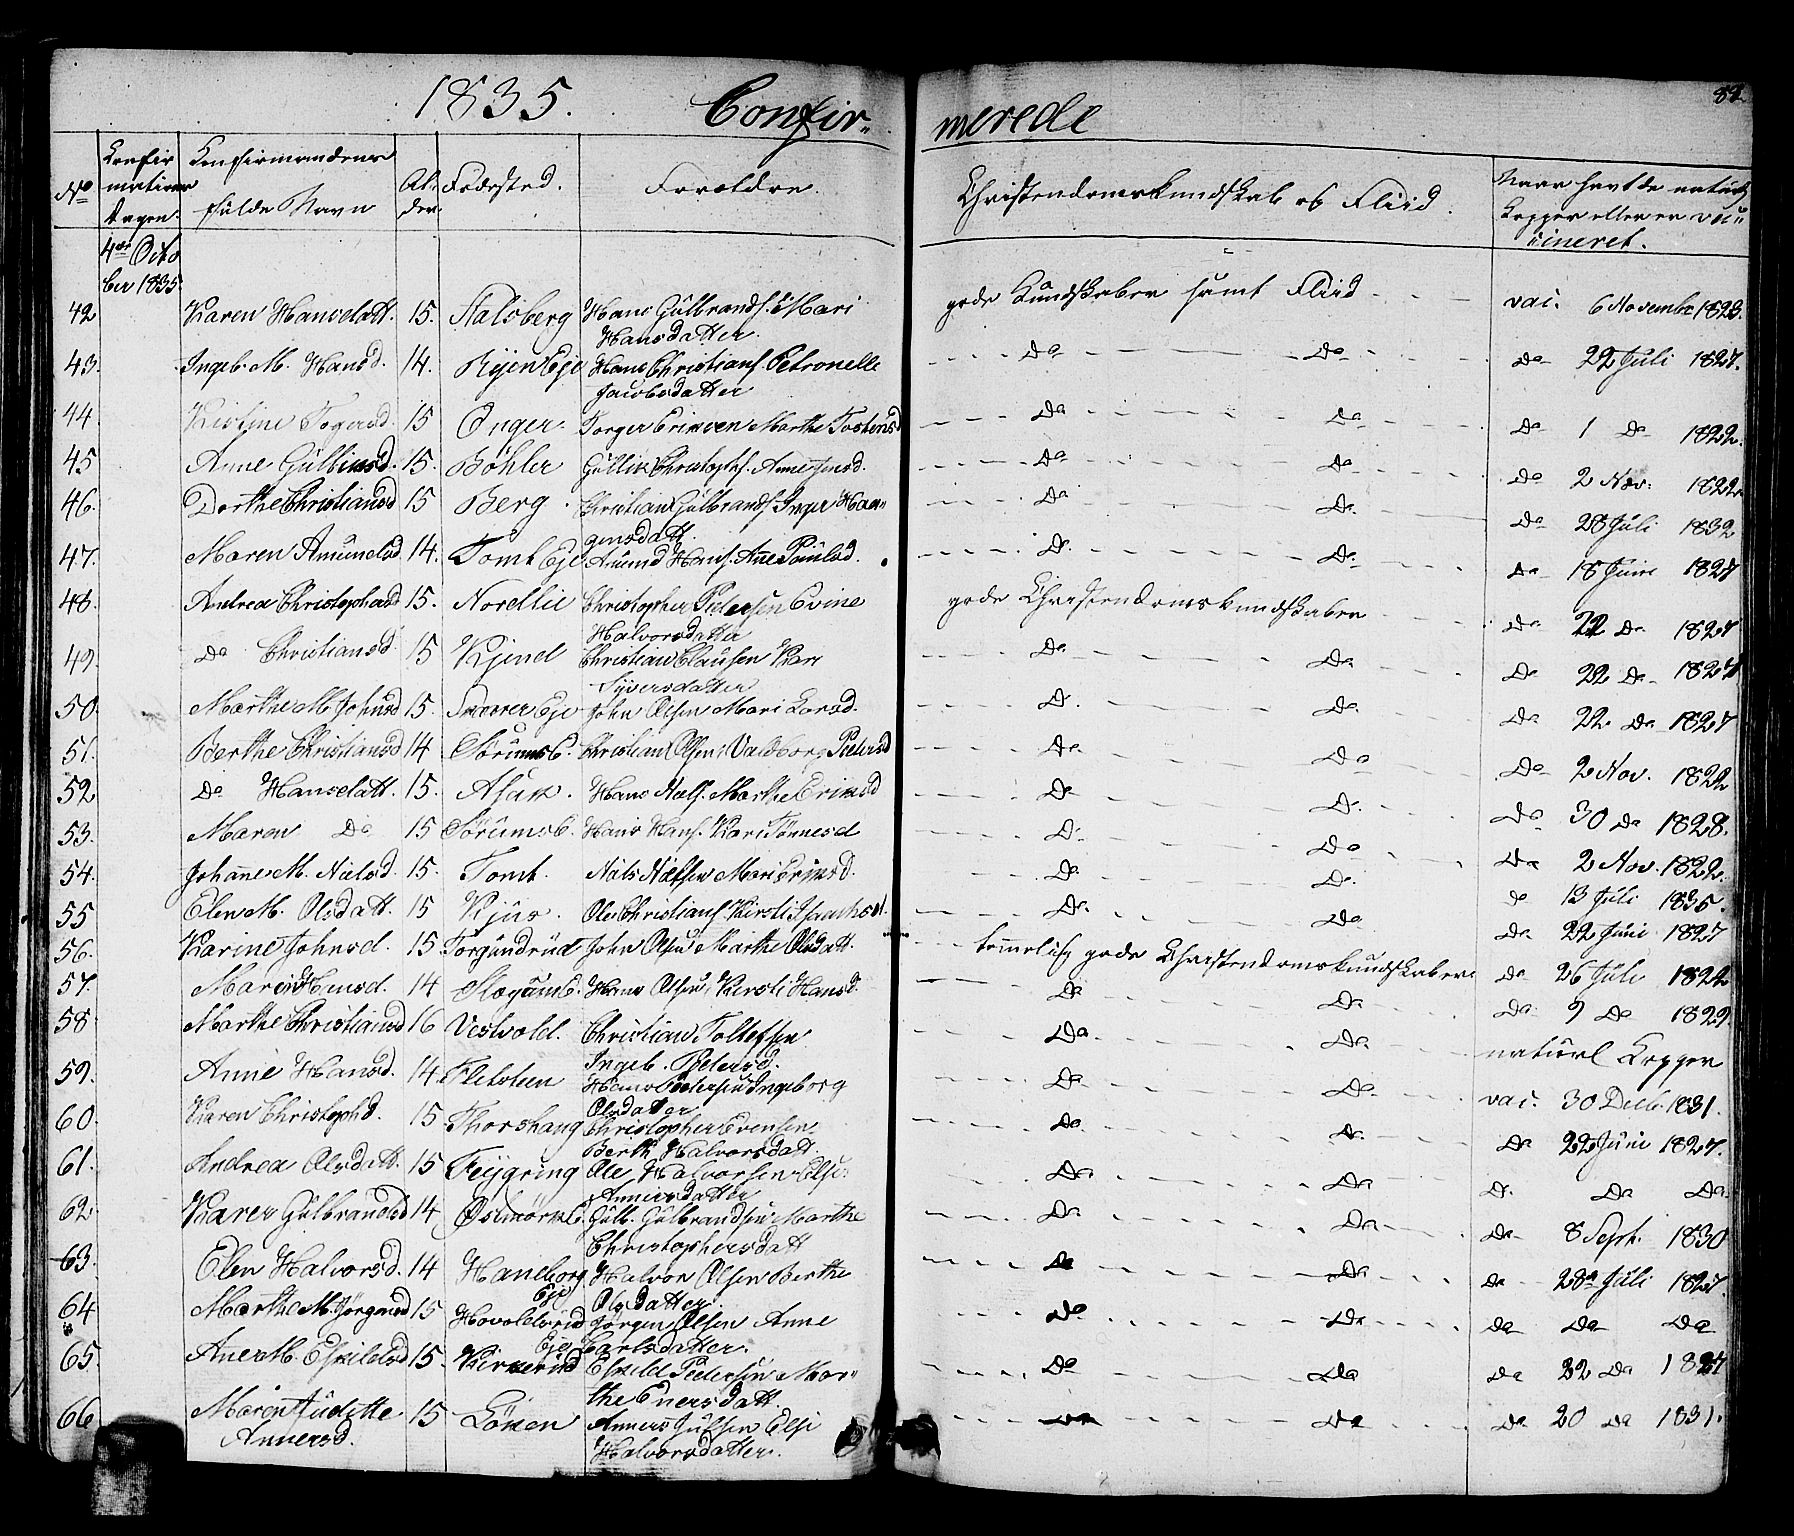 1835. Confir= merede 82
No Confirmations Dagen. Konfirmandens fulde Navn Alder. Fødested. Forældre. Christendomskundskab og Fliid. Naar havt de naturl. Kopper eller er vaccineret.
4de October 1835
42 Karen Hansdatt. 15. Stalsberg Hans Gulbrands. Mari Hansdatter gode Kundskaber samt Fliid vac. 6 Novembr 1823.
43. Ingeb. M. Hansd. 14. Ryen Eje Hans Christians. Petronelle Jacobsdatter Do Do Do 22 Juli 1827.
44 Kistine Togersd. 15 Onger Torger Eriksen Marthe Tostensd Do Do Do 1 Do 1822.
45 Anne Gulliksd. 15. Böhler Gullik Christoph. Anne Jensd. Do Do Do 2 Nov. 1822
46. Dorthe Christiansd 15 Berg Christian Gulbrands. Inger Haagensdatt. Do Do Do 28 Juli 1832
47. Maren Amundsd. 14. Tomt Eje Amund Hans. Anne Paulsd. D. Do. Do 18 Juni 1827
48. Andrea Christophersd 15. Nordlie Christopher Pedersen Evine Halvorsdatter gode Christendomskundskaber Do 22 Do 1827
49. Do Christiansd. 15 Kjend Christian Clausen Kari Syversdatter Do Do Do 22 Do 1827
50 Marthe M Johnsd 15. Eje John Olsen Mari Larsd. D. Do Do 22. Do 1827
51. Berthe Christiansd 14 Sörumsb. Christian Olsen Valdborg Pedersd Do Do Do 2 Nov. 1822
52 Do Hansdatt. 15. Asak. Hans Niels. Marthe Eriksd Do D. Do 30 Do 1828.
53. Maren Do 15 Sörumsb. Hans Hans. Kari Tönnesd D. Do Do 2 Nov. 1822.
54. Johanne M. Nielsd. 15. Tomt. Niels Nielsen Mari Eriksd. Do Do. Do 13 Juli 1835.
55 Elen M. Olsdatt. 15 Kjus. Ole Christians. Kirsti Isaachsd. Do. Do Do 22 Juni 1827
56. Karine Johnsd. 15 Torgundrud John Olsen Marthe Olsdatt. temmelig gode Christendomskundskaber Do 26 Juli 1822
57. Mari Hansd. 14 Hans Olsen Kirsti Hansd. Do Do Do 9 Do 1829.
58 Marthe Christiansd 16 Vestvold. Christian Tollefsen Ingeb. Petersd. Do Do naturl Kopper
59. Anne Hansd. 14 Fletsteen Hans Pedersen Ingeborg Olsdatter Do Do vac. 30 Decb. 1831.
60. Karen Christophd. 15 Thorshaug Christopher Evensen Berth Halvorsdatt. Do Do. Do 22 Juni 1827.
61. Andrea Olsdatt. 15 Feygring Ole Halvorsen Else Annersdatter Do Do D. Do Do
62. Karen Gulbrandsd 14 Östmörkb. Gulb. Gulbrandsen Marthe Christophersdatt Do Do Do 8 Sept. 1830
63. Elen Halvorsd. 14 Haneborg Eje Halvor Olsen Berthe Olsdatter Do Do Do 28 Juli 1827.
64 Marthe M. Jörgensd 15 Hovoldsrud Eje Jörgen Olsen Anne Carlsdatter. Do Do Do Do Do
65. Anne M. Eskildsd 15. Kirkerud Eskild Pedersen Marthe Enersdatt. Do Do Do 22 Do 1827
66 Maren Judithe Annersd. 15 Löken Anners Julsen Elsi Halvorsdatter. Do Do Do 20 Do 1831.